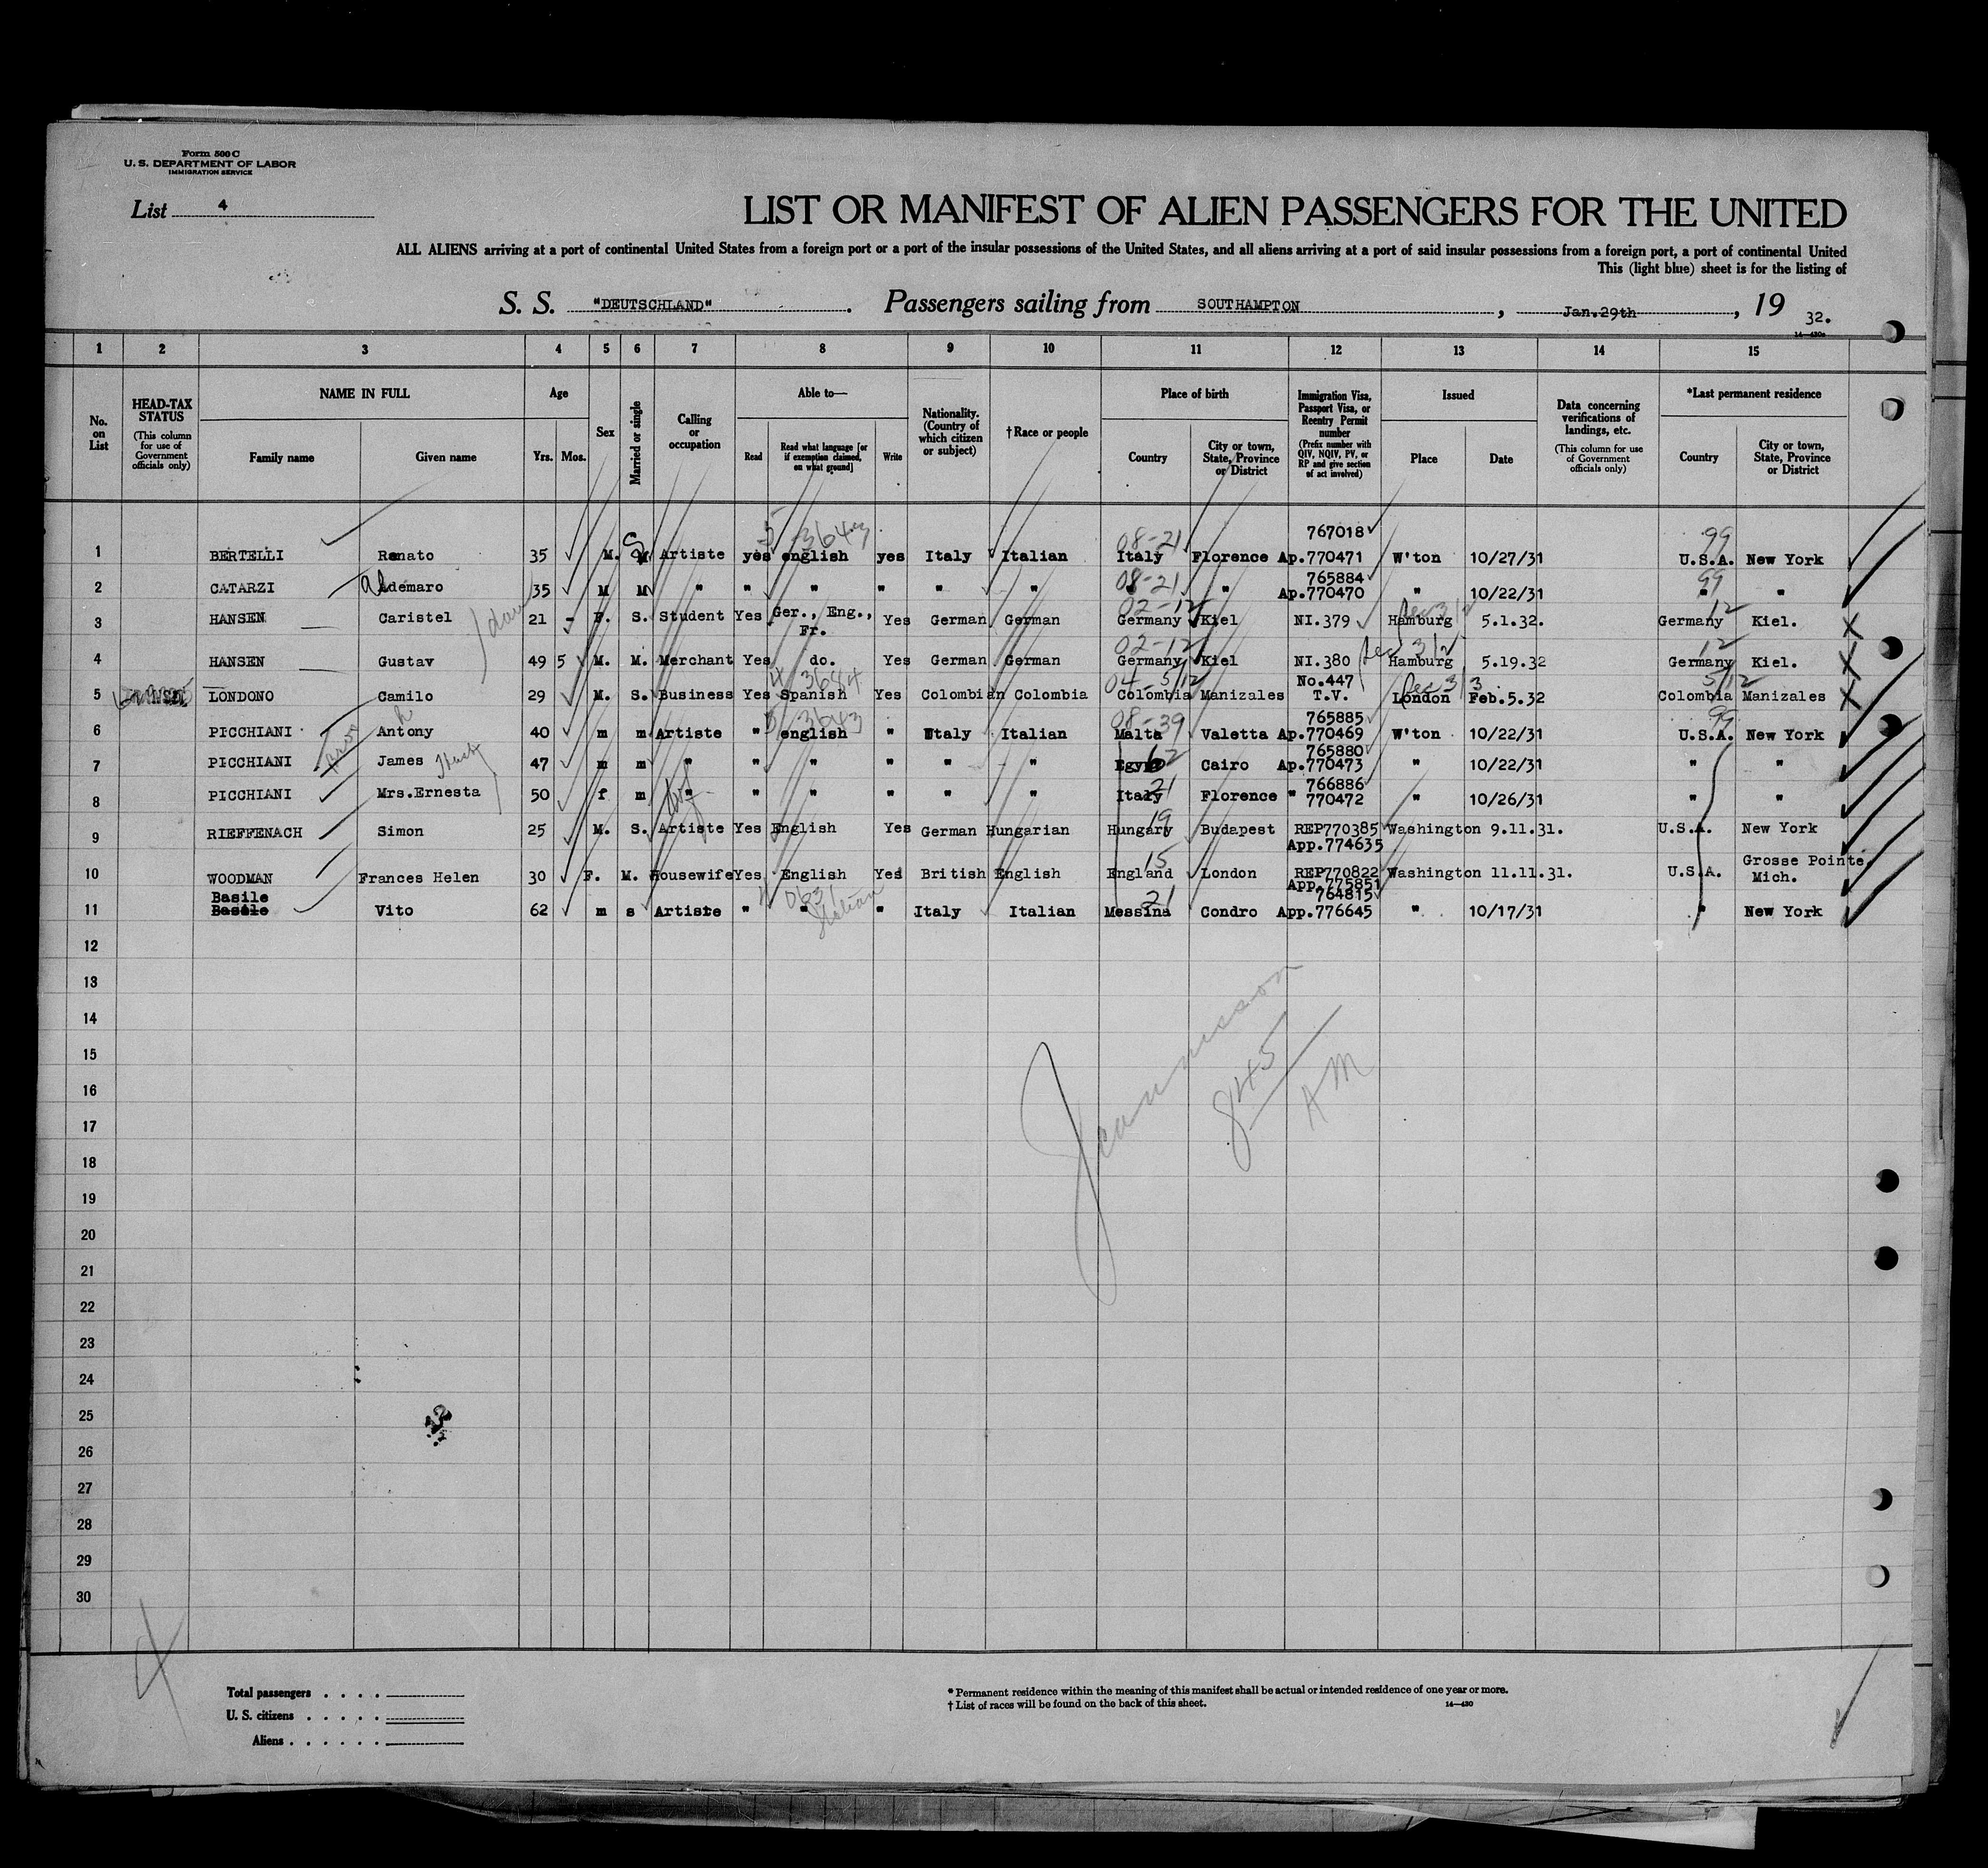 Form 500 C
U. S. DEPARTMENT OF LABOR
IMMIGRATION SERVICE
List 4
LIST OR MANIFEST OF ALIEN PASSENGERS FOR THE UNITED
ALL ALIENS arriving at a port of continental United States from a foreign port or a port of the insular possessions of the United States, and all aliens arriving at a port of said insular possessions from a foreign port, a port of continental United
This (light blue) sheet is for the listing of
S. S. "DEUTSCHLAND". Passengers sailing from SOUTHAMPTON, Jan.29th, 19 32.
14—430c
1 2 3 4 5 6 7 8 9 10 11 12 13 14 15
No. on List
HEAD-TAX STATUS (This column for use of Government officials only)
NAME IN FULL
Family name Given name
Age
Yrs. Mos.
Sex
Married or single
Calling or occupation
Able to—
Read Read what language [or if exemption claimed, on what ground] Write
Nationality. (Country of which citizen or subject)
†Race or people
Place of birth
Country City or town, State, Province or District
Immigration Visa, Passport Visa, or Reentry Permit number (Prefix number with QIV, NQIV, PV, or RP and give section of act involved)
Issued
Place Date
Data concerning verifications of landings, etc. (This column for use of Government officials only)
*Last permanent residence
Country City or town, State, Province or District
5 3643 08-21 767018 99
1 BERTELLI Renato 35 M. M S Artiste yes english yes Italy Italian Italy Florence Ap.770471 W'ton 10/27/31 U.S.A. New York
08-21 765884 99
2 CATARZI Ademaro 35 M M " " " " " " " " Ap.770470 " 10/22/31 " "
02-12 12
3 HANSEN Caristel 21 - F. S. Student Yes Ger., Eng., Fr. Yes German German Germany Kiel NI.379 Hamburg 5.1.32. Germany Kiel.
02-12 12
4 HANSEN Gustav 49 5 M. M. Merchant Yes do. Yes German German Germany Kiel NI.380 Hamburg 5.19.32 Germany Kiel.
4 3684 04-512 No.447 512
5 LONDONO Camilo 29 M. S. Business Yes Spanish Yes Colombian Colombia Colombia Manizales T.V. London Feb.5.32 Colombia Manizales
5 3643 08-39 765885 99
6 PICCHIANI Antony h 40 m m Artiste " english " Italy Italian Malta Valetta Ap.770469 W'ton 10/22/31 U.S.A. New York
62 765880
7 PICCHIANI James 47 m m " " " " " " Egypt Cairo Ap.770473 " 10/22/31 " "
21 766886
8 PICCHIANI Mrs.Ernesta 50 f m " wf " " " " " Italy Florence " 770472 " 10/26/31 " "
19
9 RIEFFENACH Simon 25 M. S. Artiste Yes English Yes German Hungarian Hungary Budapest REP770385 App.774635 Washington 9.11.31. U.S.A. New York
15
10 WOODMAN Frances Helen 30 F. M. Housewife Yes English Yes British English England London REP770822 App.775851 Washington 11.11.31. U.S.A. Grosse Pointe, Mich.
Basile 21 764815
11 Basile Vito 62 m s Artiste " " Italian " Italy Italian Messina Condro App.776645 " 10/17/31 " New York
12
13
14
15
16
17
18
19
20
21
22
23
24
25
26
27
28
29
30
845
AM
Total passengers . . . .
U. S. citizens . . . . .
Aliens . . . . . .
* Permanent residence within the meaning of this manifest shall be actual or intended residence of one year or more.
† List of races will be found on the back of this sheet.
14—430